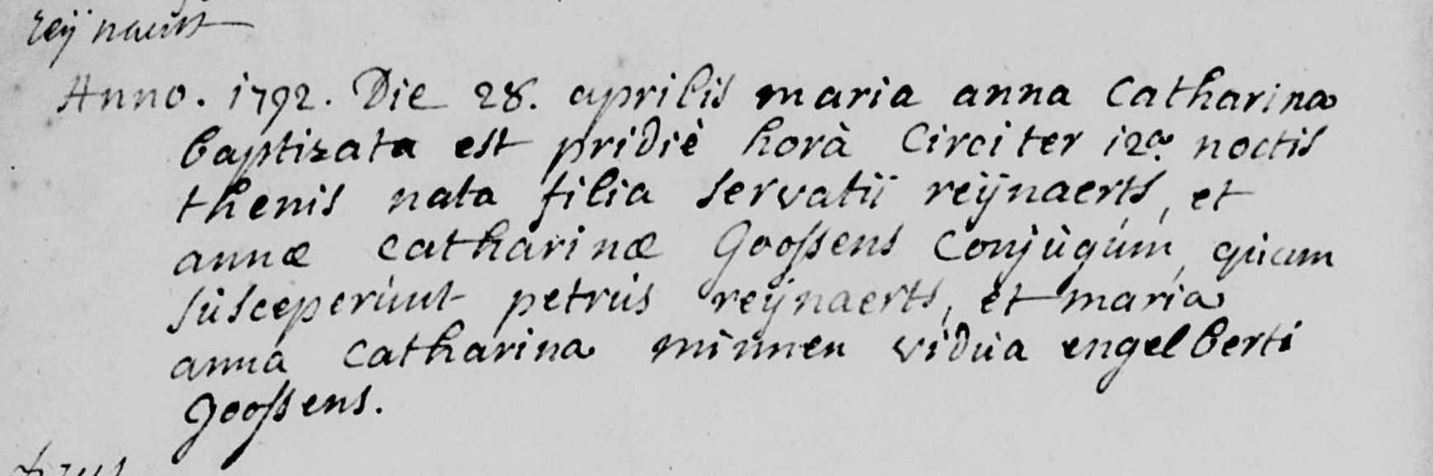 reÿnaerts
Anno. 1792. Die 28. aprilis maria anna Catharina
baptizata est pridiè horà Circiter 12a. noctis
thenis nata filia servatii reÿnaerts, et
annæ catharinæ Goossens Conjùgùm, quam
sùsceperùnt petrùs reÿnaerts, et maria
anna catharina minnen vidùa engelberti
Goossens.